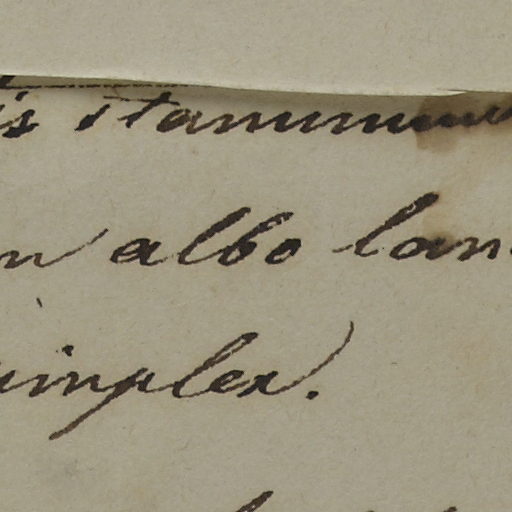 is staminum
n albo lan
simplex.